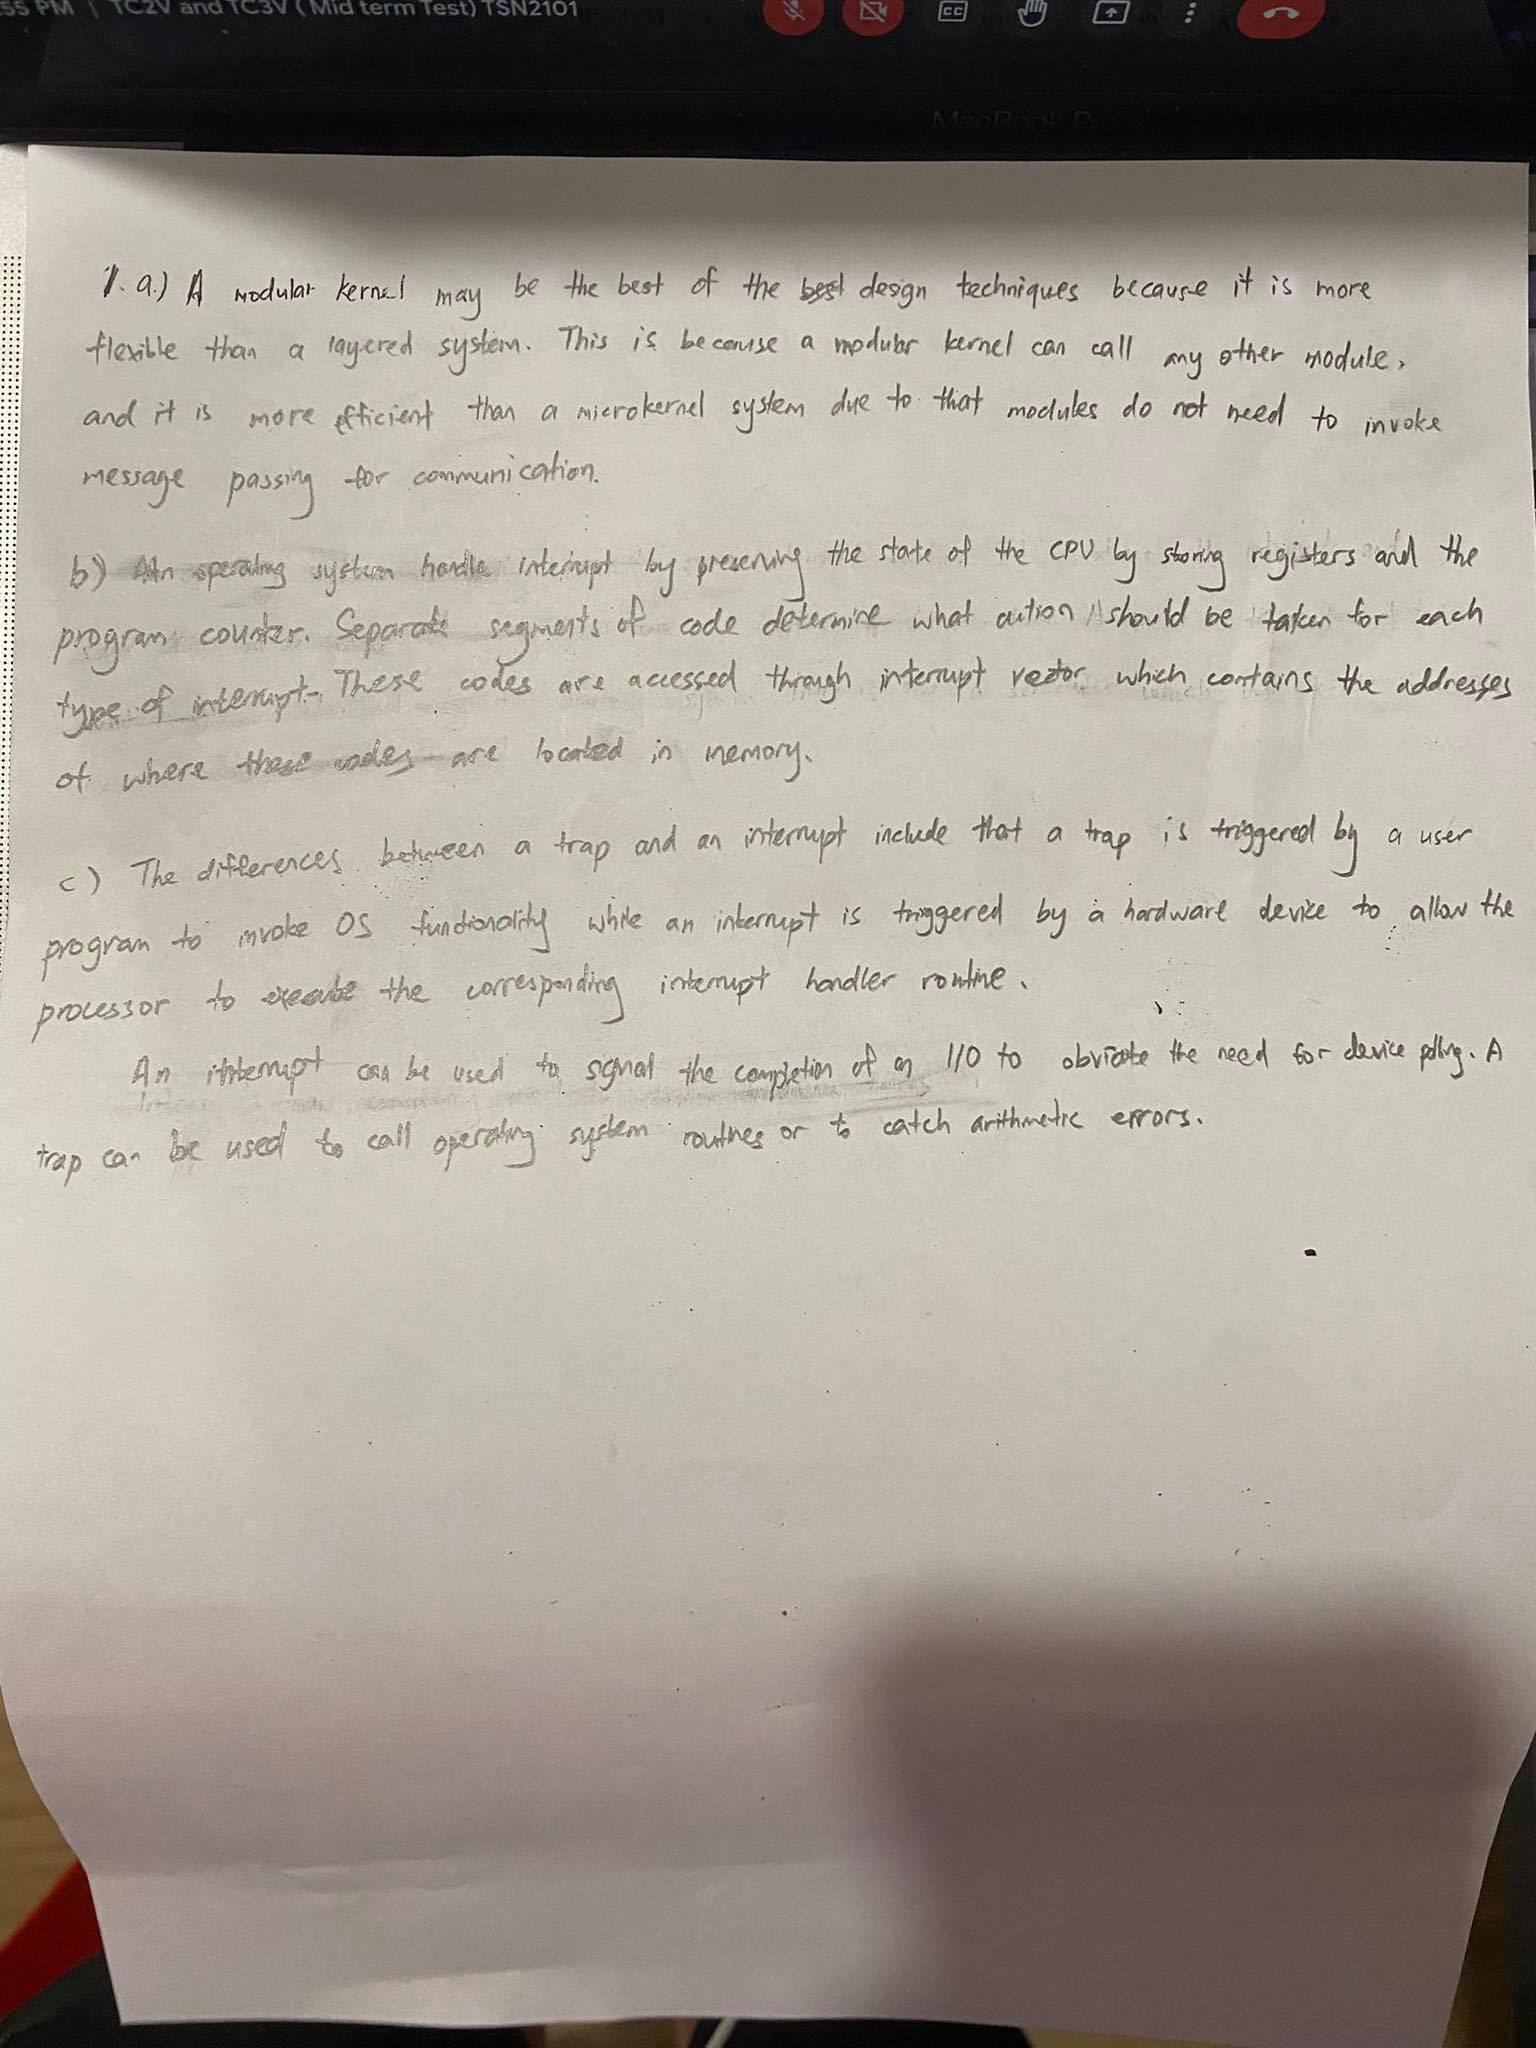 55 PM | TC2V and TC3V ( Mid term Test) TSN2101
CC
MacBook Pro
1. a.) A modular kernel may be the best of the best design techniques because it is more
flexible than a layered system. This is because a modular kernel can call any other module,
and it is more efficient than a microkernel system due to that modules do not need to invoke
message passing for communication.
b) An operating system handle interrupt by preserving the state of the CPU by storing registers and the
program counter. Separate segments of code determine what action should be taken for each
type of interrupt. These codes are accessed through interrupt vector which contains the addresses
of where these codes are located in memory.
c) The differences between a trap and an interrupt include that a trap is triggered by a user
program to invoke OS functionality while an interrupt is triggered by a hardware device to allow the
processor to execute the corresponding interrupt handler routine.
An interrupt can be used to signal the completion of an I/O to obviate the need for device polling. A
trap can be used to call operating system routines or to catch arithmetic errors.